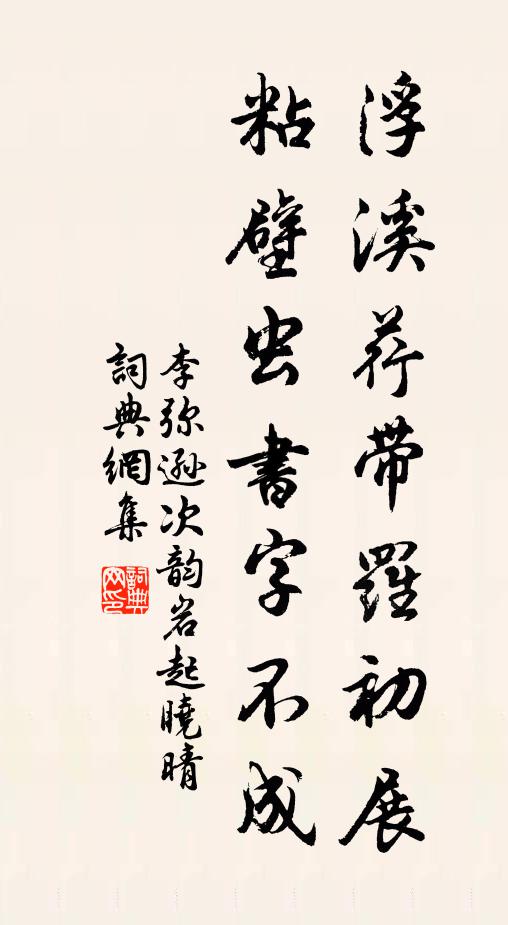 浮溪荇帶羅初展
粘壁虫書字不成
李弥遜次韵岩起曉晴
詞典網集
詞典网印